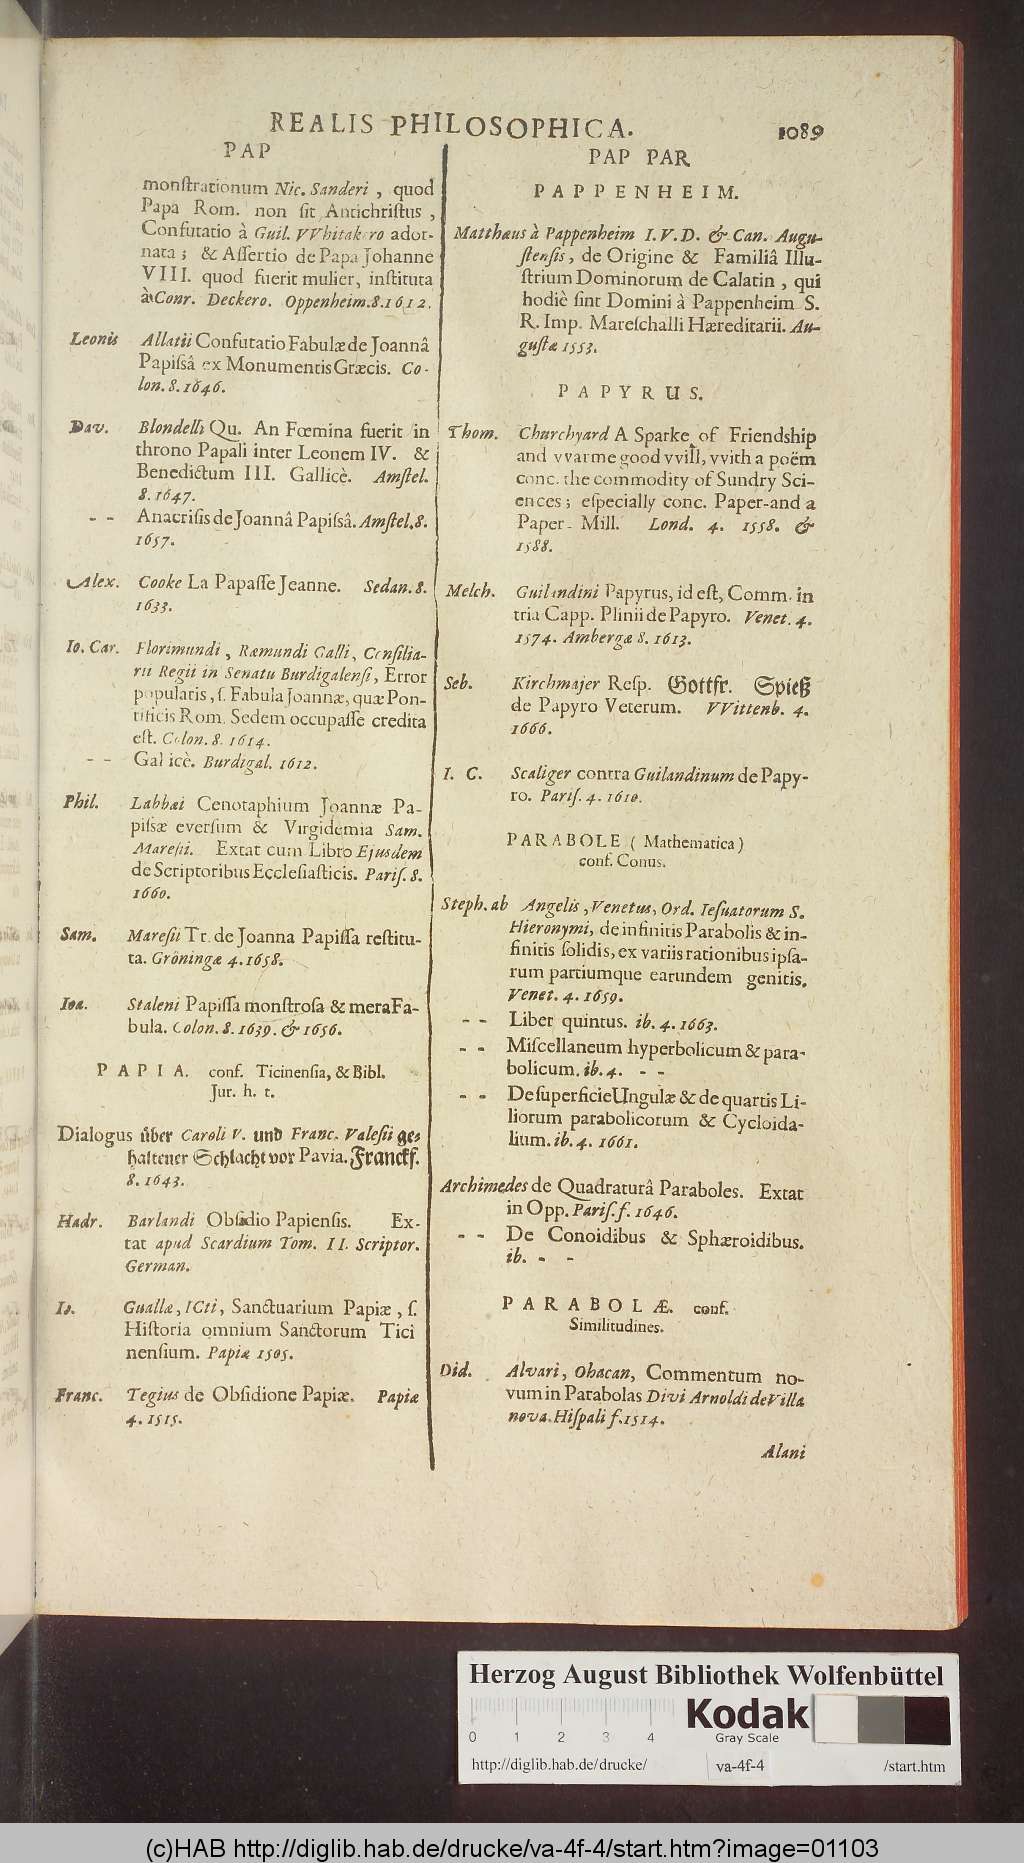 REALIS PHILOSOPHICA. 1089
PAP
monſtrationum Nic. Sanderi, quod
Papa Rom. non ſit Antichriſtus,
Confutatio à Guil. VVhitakero ador-
nata; & Aſſertio de Papa Johanne
VIII. quod fuerit mulier, inſtituta
à Conr. Deckero. Oppenheim. 8. 1612.
Leonis Allatii Confutatio Fabulæ de Joannâ
Papiſsâ ex Monumentis Græcis. Co-
lon. 8. 1646.
Dav. Blondelli Qu. An Fœmina fuerit in
throno Papali inter Leonem IV. &
Benedictum III. Gallicè. Amſtel.
8. 1647.
- - Anacriſis de Joannâ Papiſsâ. Amſtel. 8.
1657.
Alex. Cooke La Papaſſe Jeanne. Sedan. 8.
1633.
Io. Car. Florimundi, Ræmundi Galli, Conſilia-
rii Regii in Senatu Burdigalenſi, Error
popularis, ſ. Fabula Joannæ, quæ Pon-
tificis Rom. Sedem occupaſſe credita
eſt. Colon. 8. 1614.
- - Gallicè. Burdigal. 1612.
Phil. Labbæi Cenotaphium Joannæ Pa-
piſsæ everſum & Virgidemia Sam.
Mareſii. Extat cum Libro Ejusdem
de Scriptoribus Eccleſiaſticis. Pariſ. 8.
1660.
Sam. Mareſii Tr. de Joanna Papiſſa reſtitu-
ta. Gröningæ 4. 1658.
Ioa. Staleni Papiſſa monſtroſa & mera Fa-
bula. Colon. 8. 1639. & 1656.
PAPIA. conf. Ticinenſia, & Bibl.
Jur. h. t.
Dialogus über Caroli V. und Franc. Valeſii ge-
haltener Schlacht vor Pavia. Franckf.
8. 1643.
Hadr. Barlandi Obſidio Papienſis. Ex-
tat apud Scardium Tom. II. Scriptor.
German.
Io. Guallæ, ICti, Sanctuarium Papiæ, ſ.
Hiſtoria omnium Sanctorum Tici
nenſium. Papiæ 1505.
Franc. Tegius de Obſidione Papiæ. Papiæ
4. 1515.
PAP PAR
PAPPENHEIM.
Matthæus à Pappenheim I. V. D. & Can. Augu-
ſtenſis, de Origine & Familiâ Illu-
ſtrium Dominorum de Calatin, qui
hodiè ſint Domini à Pappenheim S.
R. Imp. Mareſchalli Hæreditarii. Au-
guſtæ 1553.
PAPYRUS.
Thom. Churchyard A Sparke of Friendship
and vvarme good vvill, vvith a poëm
conc. the commodity of Sundry Sci-
ences; eſpecially conc. Paper-and a
Paper- Mill. Lond. 4. 1558. &
1588.
Melch. Guilandini Papyrus, id eſt, Comm. in
tria Capp. Plinii de Papyro. Venet. 4.
1574. Ambergæ 8. 1613.
Seb. Kirchmajer Reſp. Gottfr. Spieß
de Papyro Veterum. VVittenb. 4.
1666.
I. C. Scaliger contra Guilandinum de Papy-
ro. Pariſ. 4. 1610.
PARABOLE (Mathematica)
conf. Conus.
Steph. ab Angelis, Venetus, Ord. Ieſuatorum S.
Hieronymi, de infinitis Parabolis & in-
finitis ſolidis, ex variis rationibus ipſa-
rum partiumque earundem genitis.
Venet. 4. 1659.
- - Liber quintus. ib. 4. 1663.
- - Miſcellaneum hyperbolicum & para-
bolicum. ib. 4. - -
- - De ſuperficie Ungulæ & de quartis Li-
liorum parabolicorum & Cycloida-
lium. ib. 4. 1661.
Archimedes de Quadraturâ Paraboles. Extat
in Opp. Pariſ. f. 1646.
- - De Conoidibus & Sphæroidibus.
ib. - -
PARABOLÆ. conf.
Similitudines.
Did. Alvari, Ohacan, Commentum no-
vum in Parabolas Divi Arnoldi de Villa
nova. Hiſpali f. 1514.
Alani
Herzog August Bibliothek Wolfenbüttel
0 1 2 3 4
Kodak
Gray Scale
http://diglib.hab.de/drucke/ va-4f-4 /start.htm
(c)HAB http://diglib.hab.de/drucke/va-4f-4/start.htm?image=01103